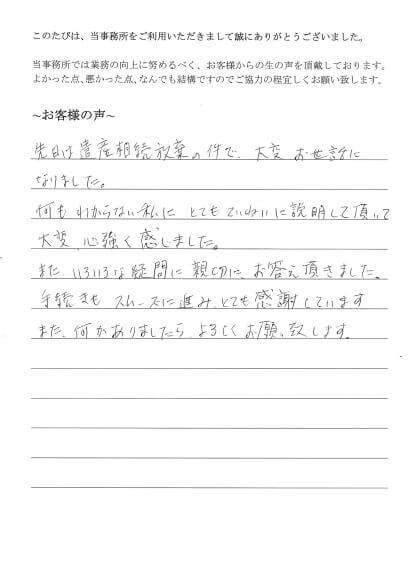 このたびは、当事務所をご利用いただきまして誠にありがとうございました。
当事務所では業務の向上に努めるべく、お客様からの生の声を頂戴しております。
よかった点、悪かった点、なんでも結構ですのでご協力の程宜しくお願い致します。
~お客様の声~
先日は遺産相続放棄の件で、大変お世話に
なりました。
何もわからない私にとてもていねいに説明して頂いて
大変、心強く感じました。
また、いろいろな疑問に親切に、お答え頂きました。
手続きもスムーズに進み、とても感謝しています
また、何かありましたら、よろしくお願い致します。